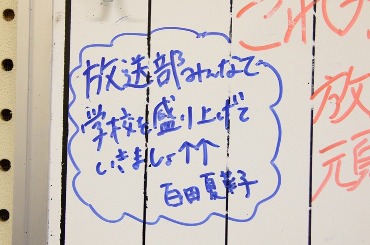 放送部みんなで
学校を盛り上げて
いきましょ↑↑
百田夏菜子
これ
放
頑